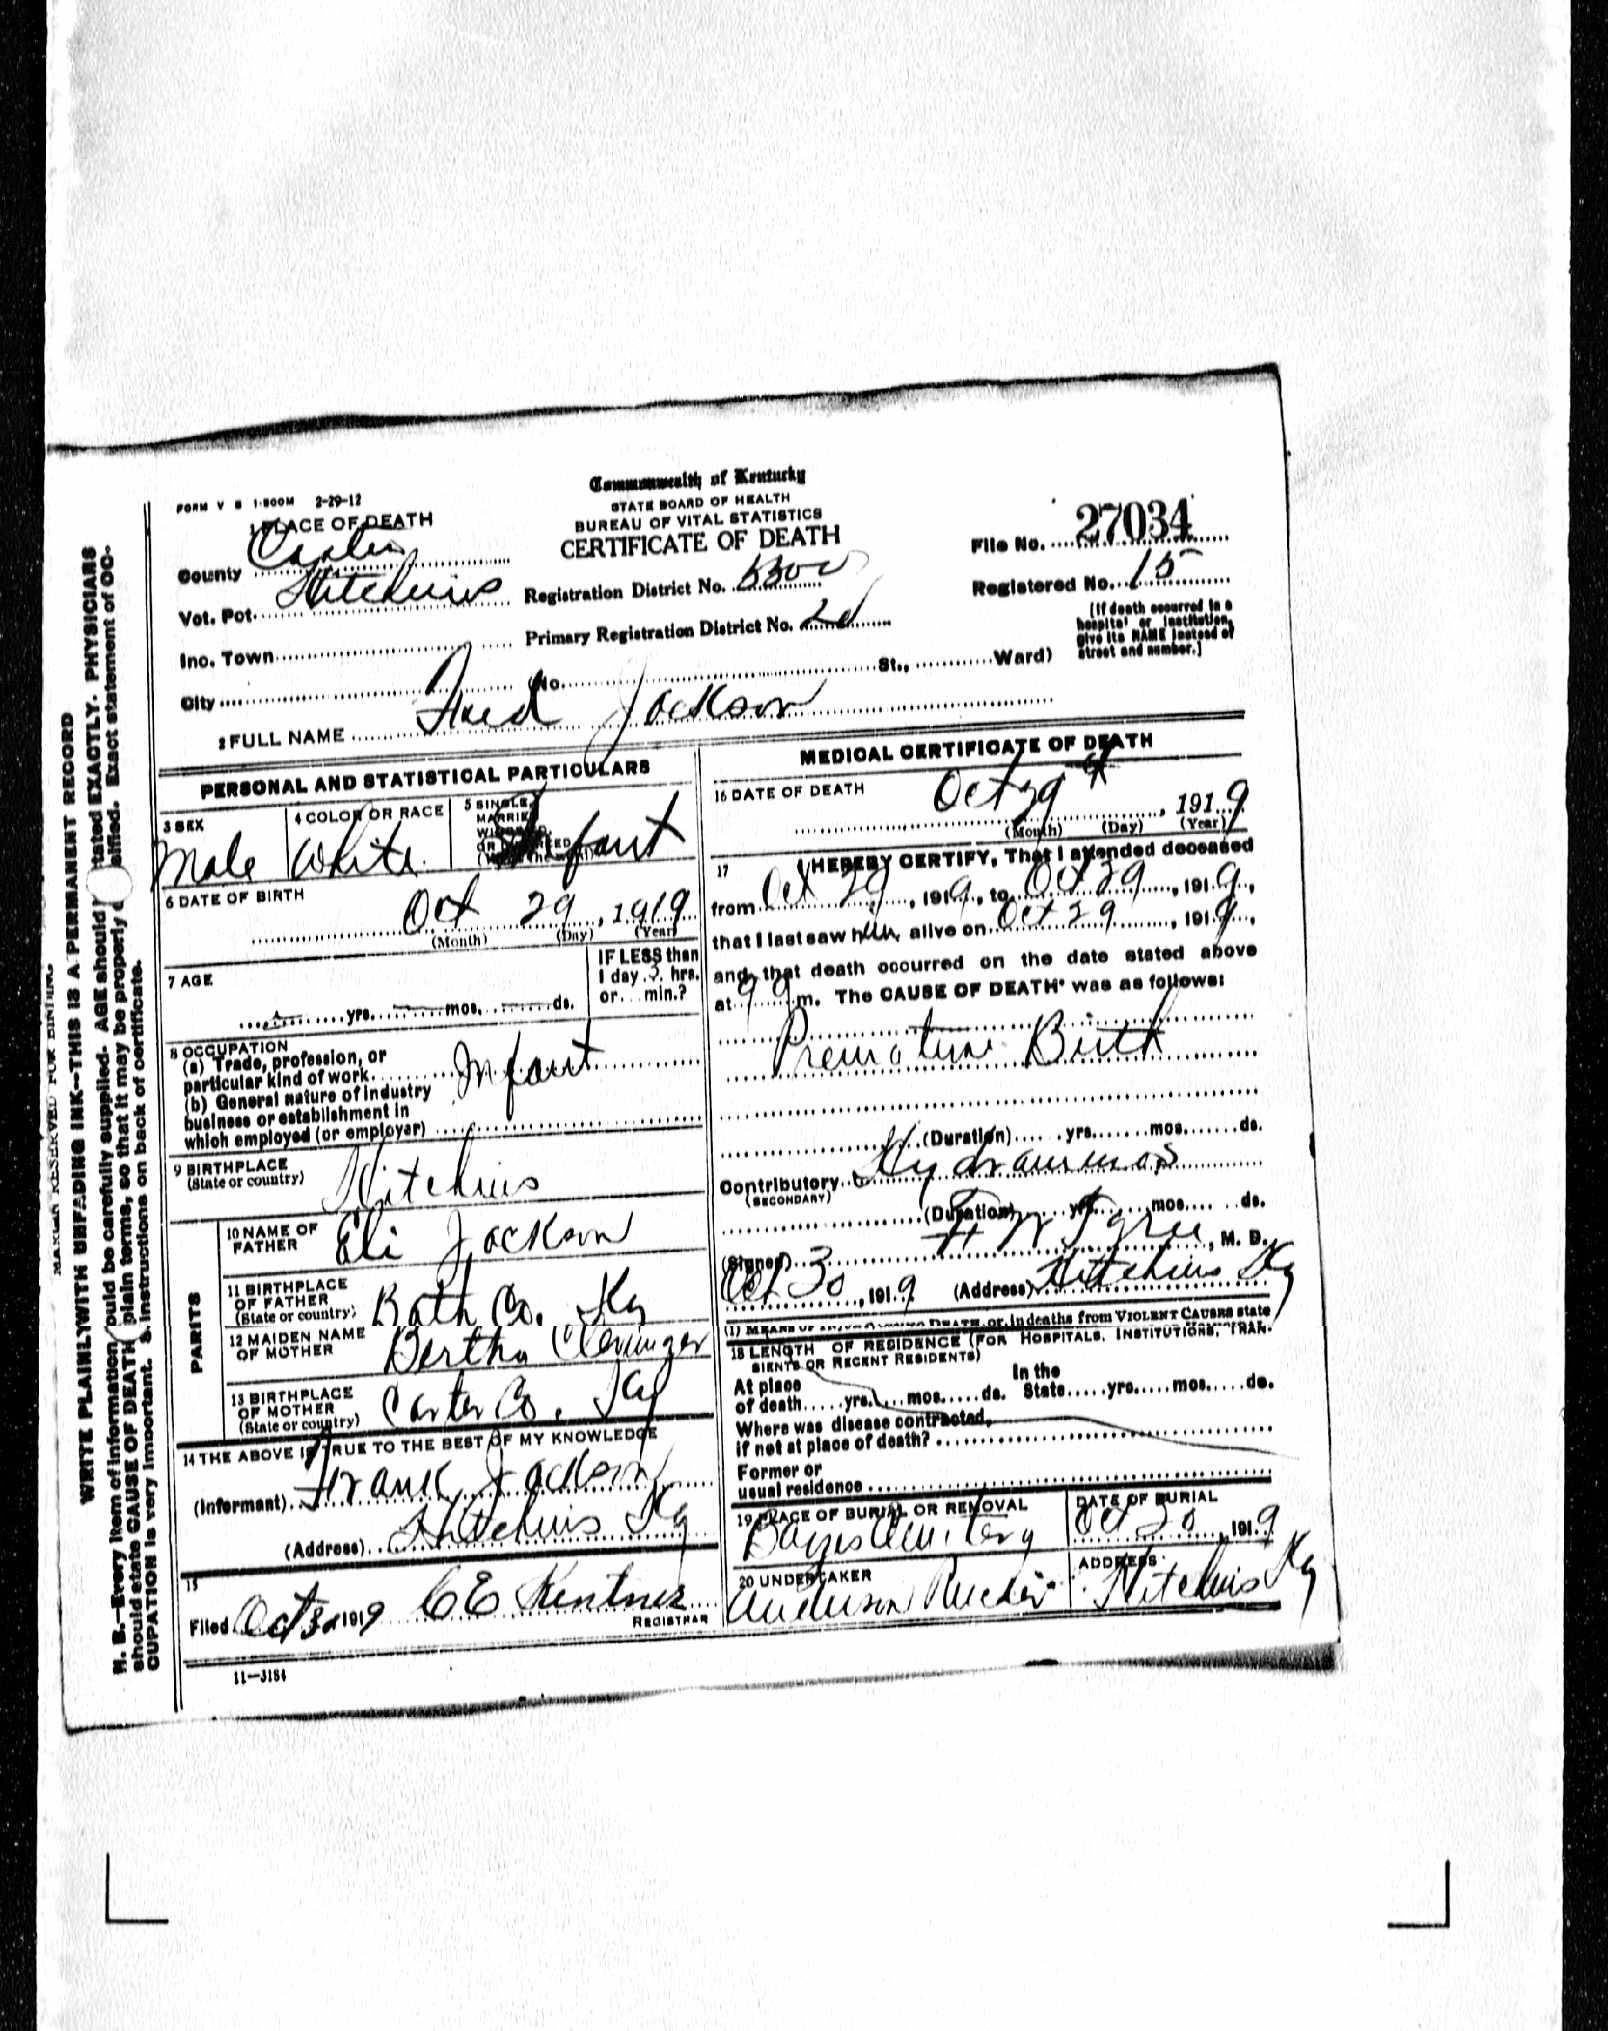 FORM V S 1-500M 2-29-12
Commonwealth of Kentucky
STATE BOARD OF HEALTH
BUREAU OF VITAL STATISTICS
CERTIFICATE OF DEATH
File No. 27034
Registered No. 15
(If death occurred in a hospital or institution, give its NAME instead of street and number.)
1 PLACE OF DEATH
County Carter
Vot. Pct. Hitchins
Inc. Town
City
Registration District No.
Primary Registration District No.
No. St., Ward)
2 FULL NAME Fred Jackson
PERSONAL AND STATISTICAL PARTICULARS
3 SEX
Male
4 COLOR OR RACE
White
5 SINGLE,
MARRIED
Infant
6 DATE OF BIRTH
Oct 29, 1919
(Month) (Day) (Year)
7 AGE
yrs. mos. ds.
IF LESS than
1 day 3 hrs.
or min.?
8 OCCUPATION
(a) Trade, profession, or
particular kind of work Infant
(b) General nature of industry
business or establishment in
which employed (or employer)
9 BIRTHPLACE
(State or country) Hitchins
PARITS
10 NAME OF
FATHER Eli Jackson
11 BIRTHPLACE
OF FATHER
(State or country) Bath Co. Ky
12 MAIDEN NAME
OF MOTHER Bertha Clevinger
13 BIRTHPLACE
OF MOTHER
(State or country) Carter Co. Ky
14 THE ABOVE IS TRUE TO THE BEST OF MY KNOWLEDGE
(Informant) Frank Jackson
(Address) Hitchins Ky
15
Filed Oct 30 1919 CE Kentner
REGISTRAR
11-3184
MEDICAL CERTIFICATE OF DEATH
16 DATE OF DEATH
Oct 29, 1919
(Month) (Day) (Year)
17 I HEREBY CERTIFY, That I attended deceased
from Oct 29, 1919, to Oct 29, 1919,
that I last saw him alive on Oct 29, 1919,
and that death occurred on the date stated above
at 9 m. The CAUSE OF DEATH* was as follows:
Premature Birth
(Duration) yrs. mos. ds.
Contributory Hydramnios
(SECONDARY)
(Duration) yrs. mos. ds.
(Signed) M. D.
Oct 30, 1919 (Address) Hitchins Ky
DEATH, or, in deaths from VIOLENT CAUSES state
18 LENGTH OF RESIDENCE (FOR HOSPITALS, INSTITUTIONS, TRAN-
SIENTS OR RECENT RESIDENTS)
At place In the
of death yrs. mos. ds. State yrs. mos. ds.
Where was disease contracted,
if not at place of death?
Former or
usual residence
19 PLACE OF BURIAL OR REMOVAL
Cemetery
DATE OF BURIAL
Oct 30, 1919
20 UNDERTAKER
Anderson
ADDRESS
Hitchins Ky
MARGIN RESERVED FOR BINDING
WRITE PLAINLY WITH UNFADING INK—THIS IS A PERMANENT RECORD
N. B.—Every item of information should be carefully supplied. AGE should be stated EXACTLY. PHYSICIANS
should state CAUSE OF DEATH in plain terms, so that it may be properly classified. Exact statement of OC-
CUPATION is very important. See instructions on back of certificate.